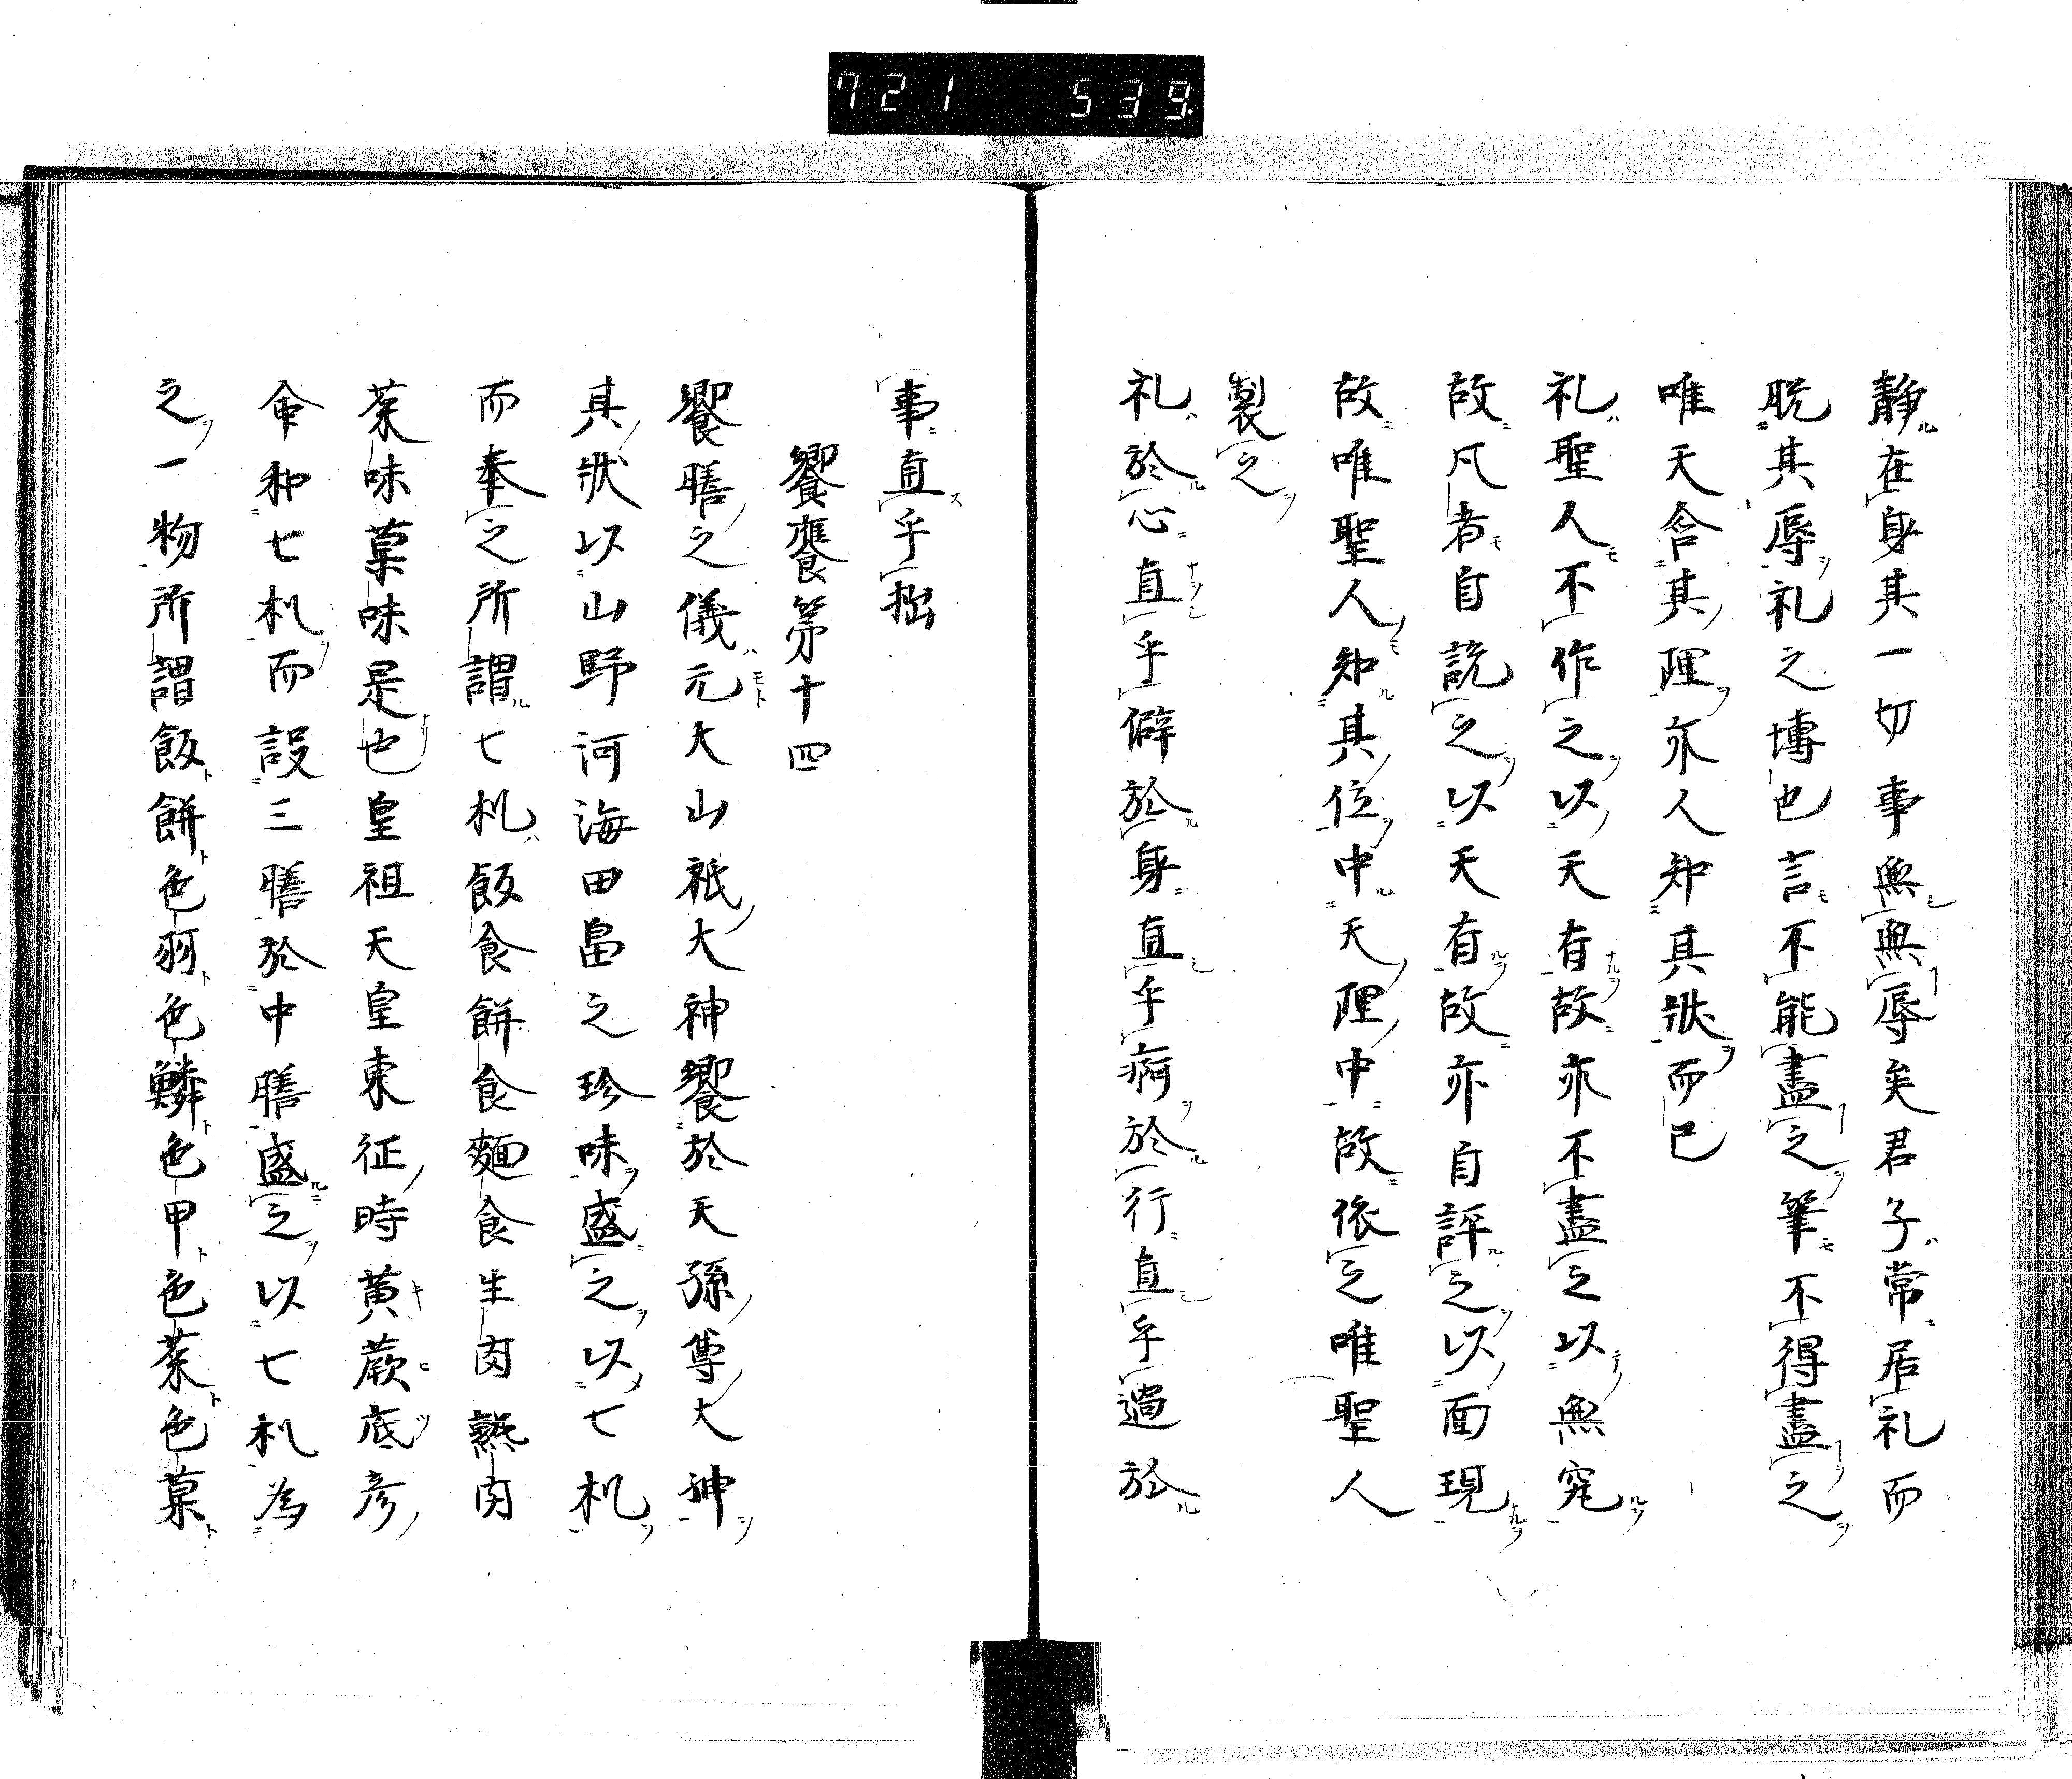 721 539
静在身其一切事無無辱矣君子常居礼而
脱其辱礼之博也言不能盡之筆不得盡之
唯天含其理亦人知其状而已
礼聖人不作之以天有故亦不盡之以無究
故凡者自説之以天有故亦自評之以面現
故唯聖人知其位中天理中故依之唯聖人
製之
礼於心直乎僻於身直乎病於行直乎過於
事直乎拙
饗饔第十四
饗膳之儀元大山祇大神饗於天孫尊大神
其状以山野河海田畠之珍味盛之以七机
而奉之所謂七机飯食餅食麺食生肉熟肉
菜味菓味是也皇祖天皇東征時黄蕨底彦
命和七机而設三膳於中膳盛之以七机為
之一物所謂飯餅色羽色鱗色甲色菜色菓